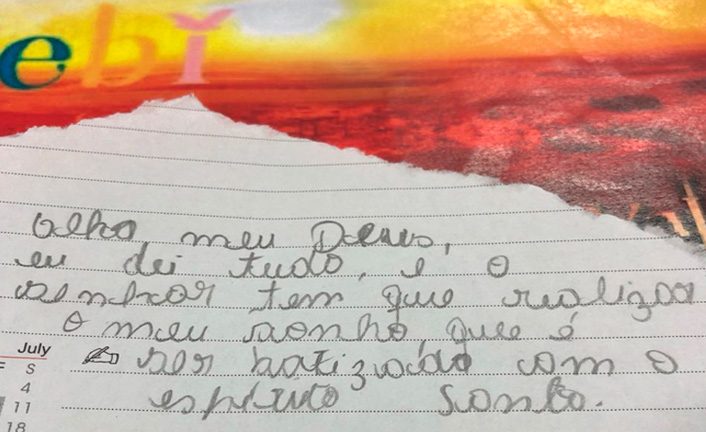 ebi
Olha meu Deus,
eu dei tudo, e o
senhor tem que realizar
o meu sonho, que é
ser batizado com o
espírito santo.
July
F S
4
11
18